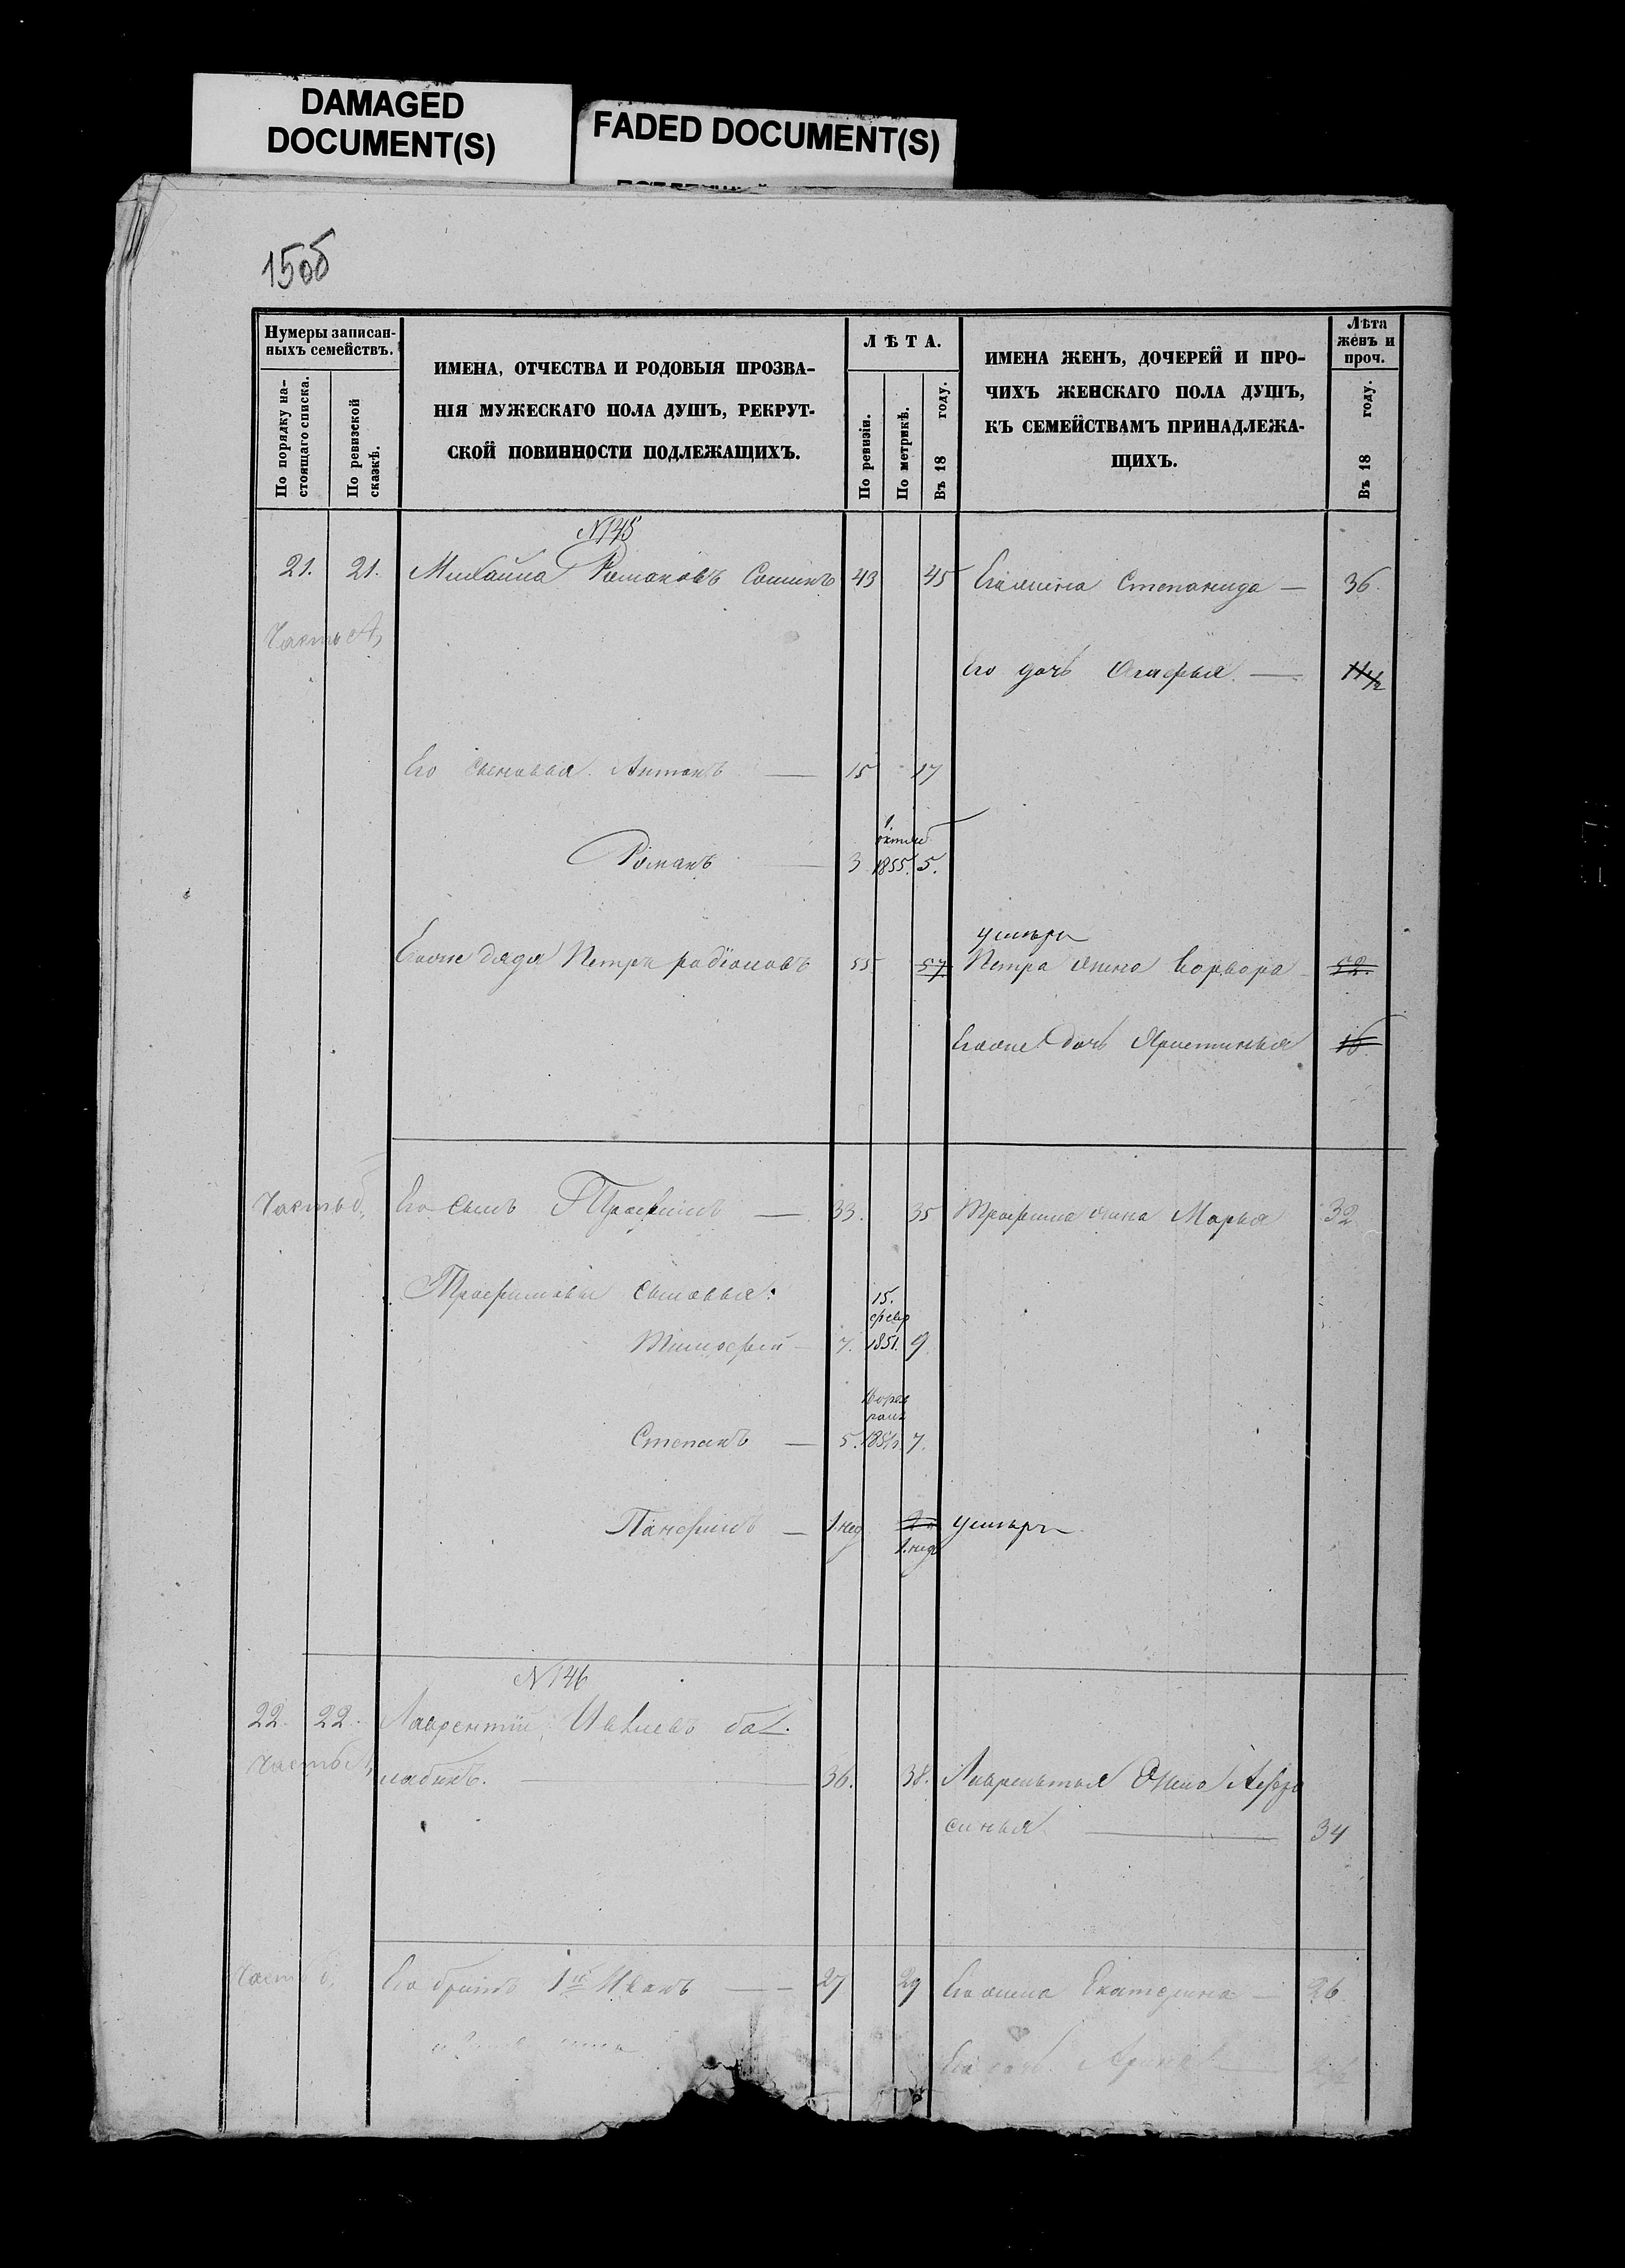 DAMAGED
DOCUMENT(S)
FADED DOCUMENT(S)
150б
Нумеры записан-
ныхъ семействъ.
По порядку на-
стоящаго списка.
По ревизской
сказкѣ.
ИМЕНА, ОТЧЕСТВА И РОДОВЫЯ ПРОЗВА-
НІЯ МУЖЕСКАГО ПОЛА ДУШЪ, РЕКРУТ-
СКОЙ ПОВИННОСТИ ПОДЛЕЖАЩИХЪ.
ЛѢТА.
По ревизіи.
По метрикѣ.
Въ 18 году.
ИМЕНА ЖЕНЪ, ДОЧЕРЕЙ И ПРО-
ЧИХЪ ЖЕНСКАГО ПОЛА ДУШЪ,
КЪ СЕМЕЙСТВАМЪ ПРИНАДЛЕЖА-
ЩИХЪ.
Лѣта
женъ и
проч.
Въ 18 году.
N 145
21. 21. Михайла Романовъ 43 45 Его жена Степанида — 36.
Часть А,
Его дочь Агафья. — 11 1/2
Его сыновья. Антонъ — 15 17
1.
октяб
Романъ — 3 1855. 5.
умеръ
Его же дядя Петръ радіоновъ 55 57. Петра жена Варвара — 52.
Его же дочь Христинья 16
Часть б, Его сынъ Трофимъ — 33. 35 Трофима жена Марья 32
Трофимовы сыновья:
15.
февр
Тимофей — 7. 1851. 9.
Степанъ — 5. 7.
Панфилъ — 1.нед 1.нед умеръ
N 146
22. 22. Лаврентій Ивлиевъ ба
Часть А, лабинъ. — 36. 38. Лаврентья жена Афро
синья — 34
Часть б, Его братъ 1й Иванъ — 27 29 Его жена Екатерина — 26.
Его дочь Арина —